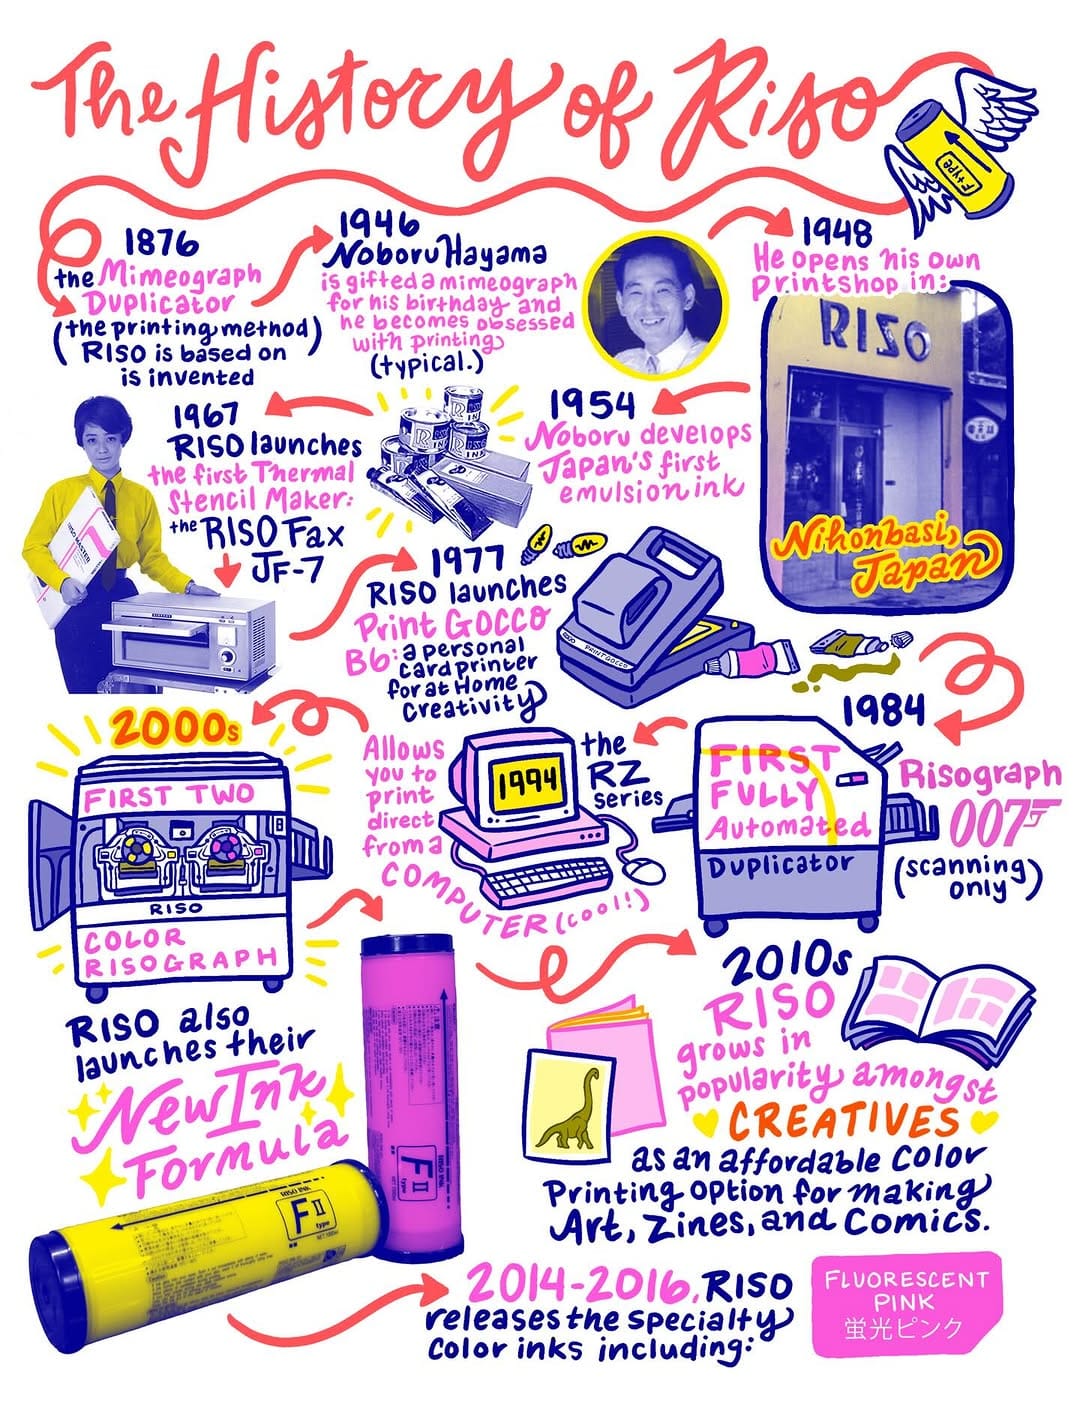 The History of Riso
Ftype
1876
the Mimeograph
Duplicator
(the printing method)
RISO is based on
is invented
1946
Noboru Hayama
is gifted a mimeograph
for his birthday and
he becomes obsessed
with printing
(typical.)
1948
He opens his own
printshop in:
RISO
Nihonbasi,
Japan
1954
Noboru develops
Japan's first
emulsion ink
1967
RISO launches
the first Thermal
Stencil Maker:
the RISO Fax
JF-7
RISO MASTER
1977
RISO launches
Print GOCCO
B6: a personal
card printer
for at Home
Creativity
RISO PRINT GOCCO
1984
Risograph
007F
(scanning
only)
FIRST
FULLY
Automated
Duplicator
the
RZ
Series
1994
Allows
you to
print
direct
from a
COMPUTER (cool!)
2000s
FIRST TWO
RISO
COLOR
RISOGRAPH
RISO also
launches their
New Ink
Formula
RISO INK
FII
type
RISO INK
FII
type
2010s
RISO
grows in
popularity amongst
CREATIVES
as an affordable Color
Printing option for making
Art, Zines, and Comics.
2014-2016, RISO
releases the specialty
Color inks including:
FLUORESCENT
PINK
蛍光ピンク